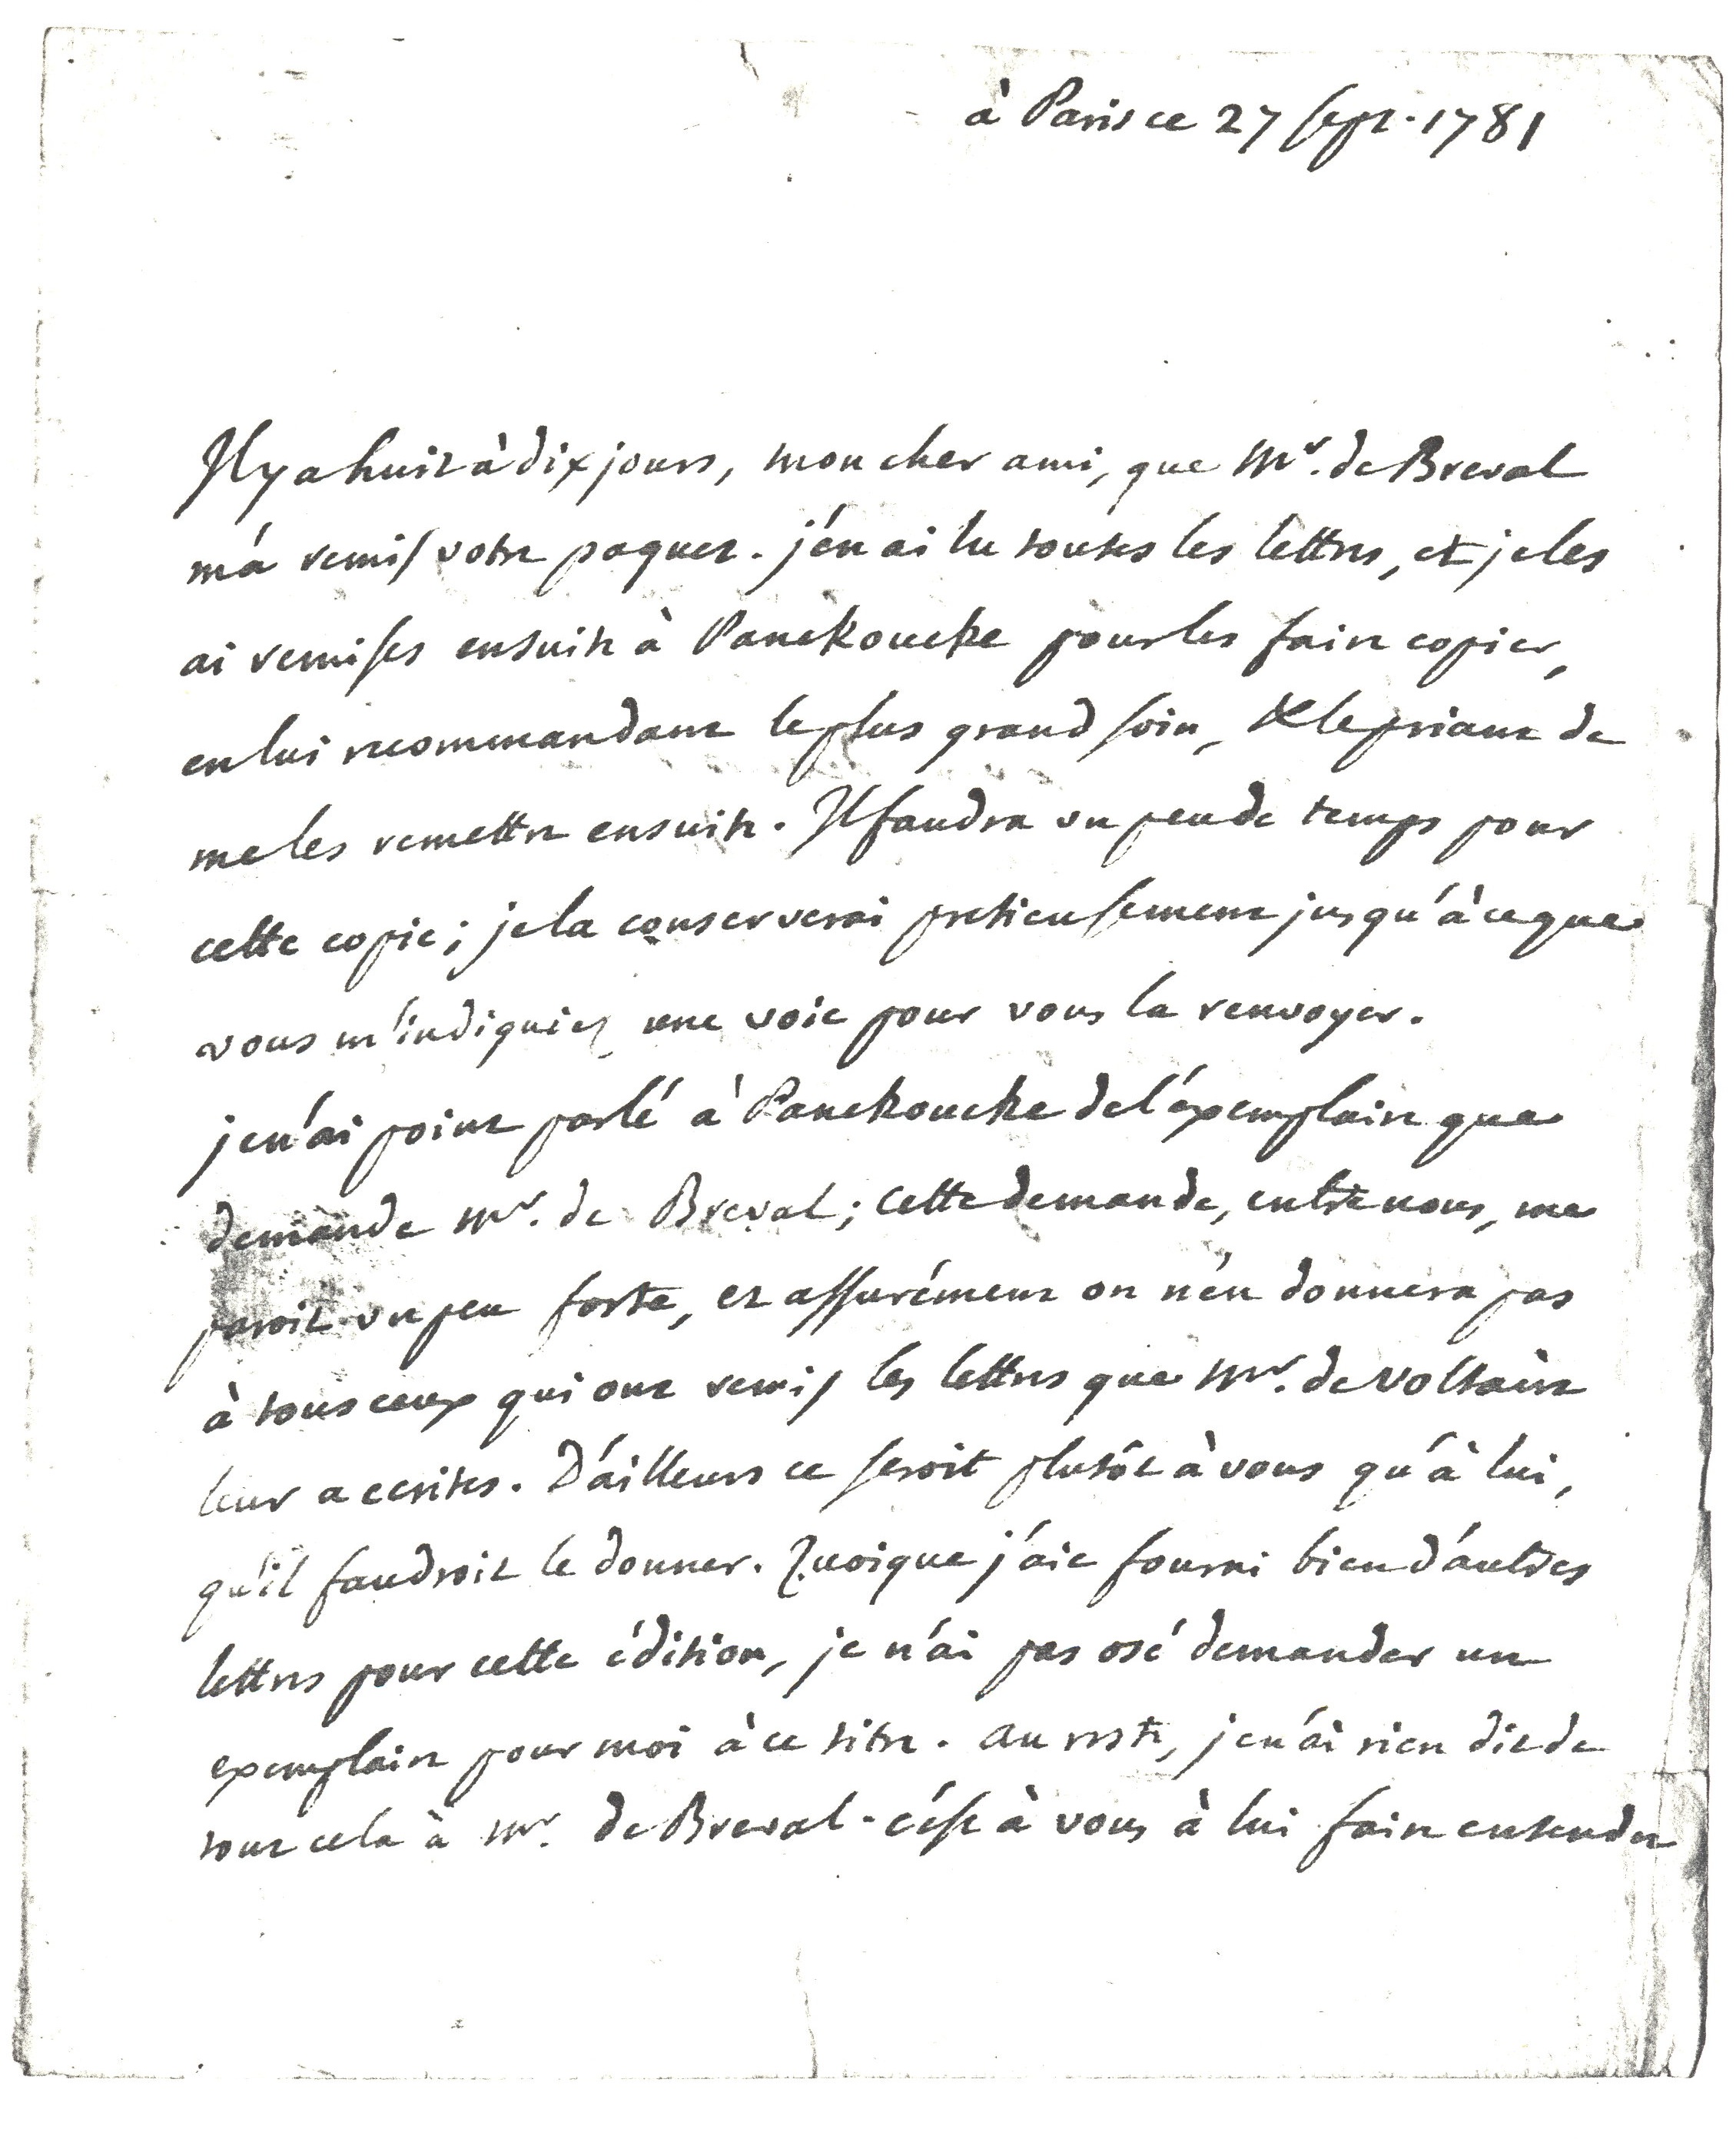 à Paris ce 27 sept. 1781
Il y a huit à dix jours, mon cher ami, que Mr. de Breval
m'a remis votre paquet. j'en ai lu toutes les lettres, et je les
ai remises ensuite à Panckoucke pour les faire copier,
en lui recommandant le plus grand soin, & le priant de
me les remettre ensuite. Il faudra un peu de temps pour
cette copie; je la conserverai pretieusement jusqu'à ce que
vous m'indiquiez une voie pour vous la renvoyer.
je n'ai point parlé à Panckoucke de l'exemplaire que
demande Mr. de Breval; cette demande, entre nous, me
paroit un peu forte, et assurément on n'en donnera pas
à tous ceux qui ont remis les lettres que Mr. de Voltaire
leur a ecrites. D'ailleurs ce seroit plutôt à vous qu'à lui,
qu'il faudroit le donner. Quoique j'aie fourni bien d'autres
lettres pour cette édition, je n'ai pas osé demander un
exemplaire pour moi à ce titre. au reste, je n'ai rien dit de
tout cela à Mr. de Breval. c'est à vous à lui faire entendre